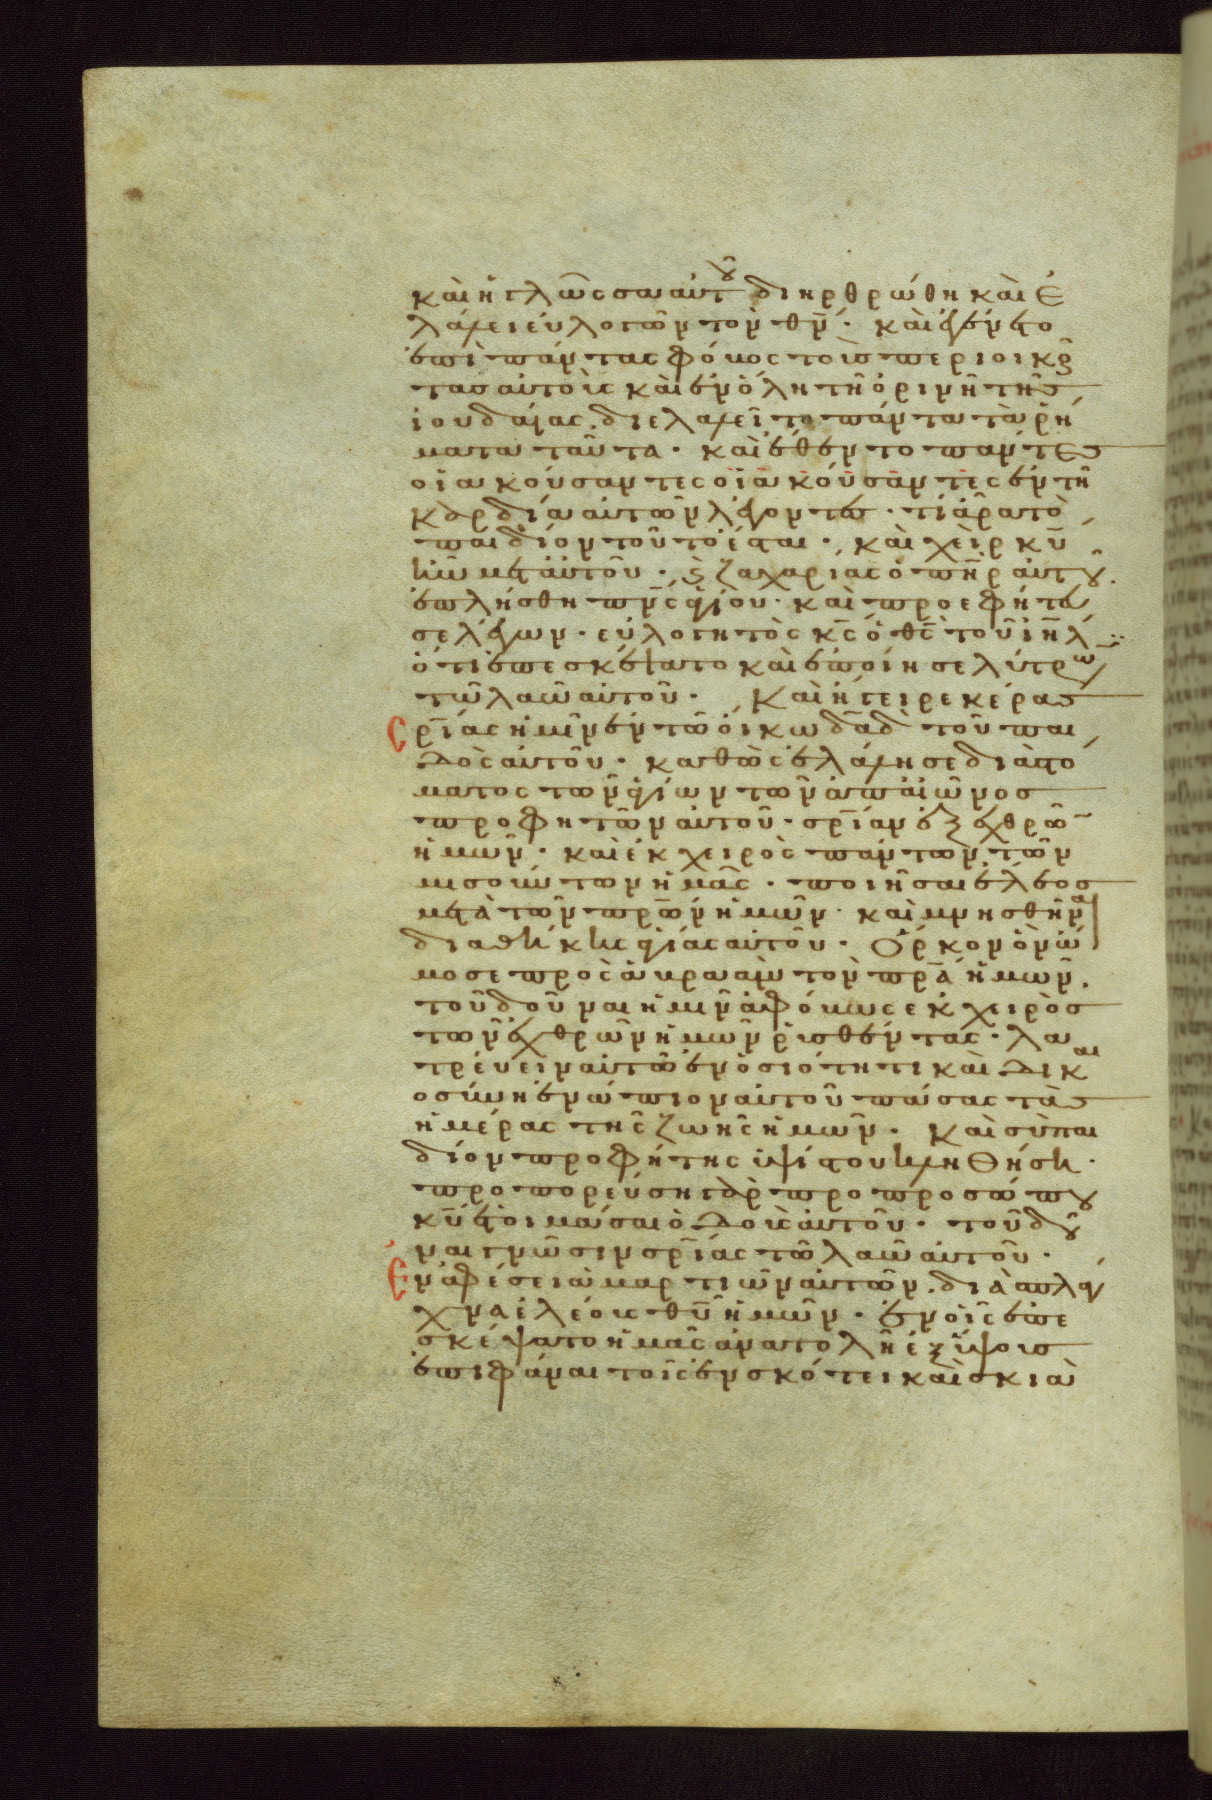 καὶ ἡ γλῶσσα αὐτοῦ διηρθρώθη καὶ ἐ
λάλει εὐλογῶν τὸν θν̄. καὶ ἐγένετο
ἐπὶ πάντας φόβος τοὺς περιοικοῦ
τας αὐτοῖς καὶ ἐν ὅλη τῆ ὀρινῆ τῆς
ἰουδαίας. διελαλεῖτο πάντα τὰ ῥή
ματα ταῦτα. καὶ ἔθεντο πάντες
οἱ ἀκούσαντες οἱ ἀκούσαντες ἐν τῆ
καρδία αὐτῶν λέγοντες. τί ἄρα τὸ
παιδίον τοῦτο ἔσται. καὶ χεὶρ κῡ
ἦν μετ αὐτοῦ. ϛ ζαχαρίας ὁ πη̄ρ αὐτοῦ
ἐπλήσθη πν̄ς ἁγίου. καὶ προεφήτευ
σε λέγων. εὐλογητὸς κς̄ ὁ θς̄ τοῦ ιη̄λ
ὅτι ἐπεσκέψατο καὶ ἐποίησε λύτρω
τῶ λαῶ αὐτοῦ. Καὶ ἤγειρε κέρας
σρ̄ίας ἡμῖν ἐν τῶ οἴκω δᾱδ τοῦ παι
δὸς αὐτοῦ. καθὼς ἐλάλησε διὰ στό
ματος τῶν ἁγίων τῶν ἀπ αἰῶνος
προφητῶν αὐτοῦ. σρ̄ίαν ἐξ ἐχθρῶ
ἡμῶν. καὶ ἐκ χειρὸς πάντων τῶν
μισούντων ἡμᾶς. ποιῆσαι ἔλεος
μετὰ τῶν πρ̄ων ἡμῶν. καὶ μνησθῆναι
διαθήκης ἁγίας αὐτοῦ. Ὅρκον ὃν ὤ
μοσε πρὸς ἀβραὰμ τὸν πρ̄α ἡμῶν.
τοῦ δοῦναι ἡμῖν ἀφόβως ἐκ χειρὸς
τῶν ἐχθρῶν ἡμῶν ῥισθέντας. λα
τρεύειν αὐτῶ ἐν ὁσιότητι καὶ δικαι
οσύνη ἐνώπιον αὐτοῦ πάσας τὰς
ἡμέρας τῆς ζωῆς ἡμῶν. Καὶ σὺ παι
δίον προφήτης ὑψίστου κληθήση.
προπορεύση γὰρ πρὸ προσώπου
κῡ ἑτοιμάσαι ὁδοὺς αὐτοῦ. τοῦ δοῦ
ναι γνῶσιν σρ̄ίας τῶ λαῶ αὐτοῦ.
Ἐν ἀφέσει ἁμαρτιῶν αὐτῶν. διὰ σπλάγ
χνα ἐλέους θῡ ἡμῶν. ἐν οἷς ἐπε
σκέψατο ἡμᾶς ἀνατολὴ ἐξ ὕψους
ἐπιφάναι τοῖς ἐν σκότει καὶ σκιᾶ